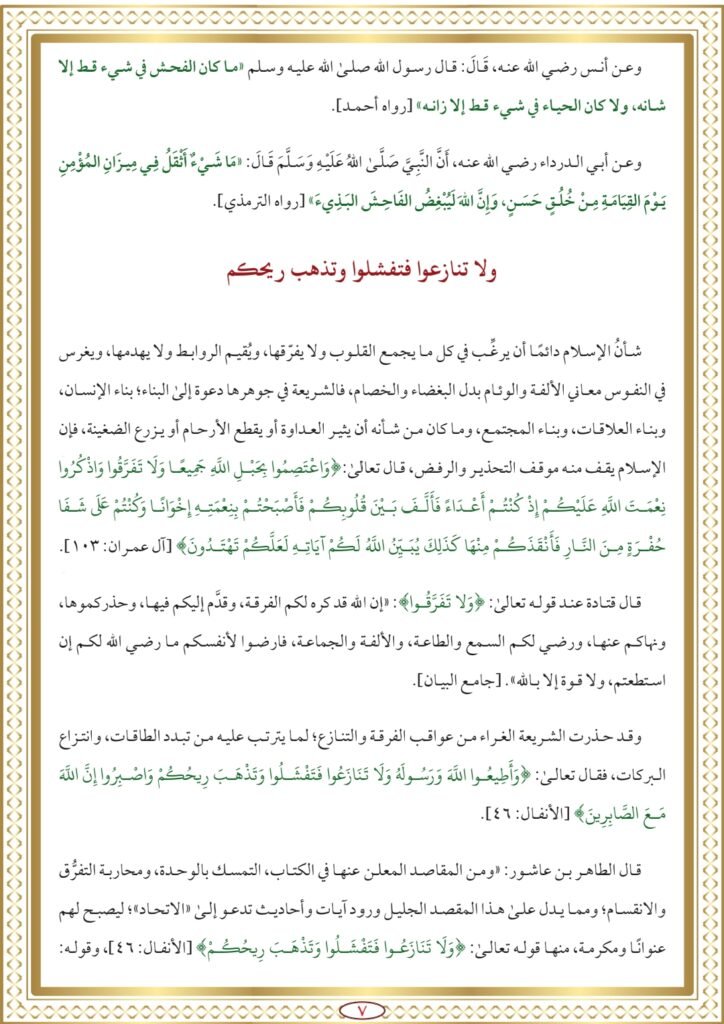 وعن أنس رضي الله عنه، قَالَ: قال رسول الله صلىٰ الله عليه وسلم «ما كان الفحش في شيء قط إلا
شانه، ولا كان الحياء في شيء قط إلا زانه» [رواه أحمد].
وعن أبي الدرداء رضي الله عنه، أَنَّ النَّبِيَّ صَلَّىٰ اللهُ عَلَيْهِ وَسَلَّمَ قَالَ: «مَا شَيْءٌ أَثْقَلُ فِي مِيزَانِ المُؤْمِنِ
يَوْمَ القِيَامَةِ مِنْ خُلُقٍ حَسَنٍ، وَإِنَّ اللهَ لَيُبْغِضُ الفَاحِشَ البَذِيءَ» [رواه الترمذي].
ولا تنازعوا فتفشلوا وتذهب ريحكم
شأنُ الإسلام دائمًا أن يرغِّب في كل ما يجمع القلوب ولا يفرّقها، ويُقيم الروابط ولا يهدمها، ويغرس
في النفوس معاني الألفة والوئام بدل البغضاء والخصام، فالشريعة في جوهرها دعوة إلىٰ البناء؛ بناء الإنسان،
وبناء العلاقات، وبناء المجتمع، وما كان من شأنه أن يثير العداوة أو يقطع الأرحام أو يزرع الضغينة، فإن
الإسلام يقف منه موقف التحذير والرفض، قال تعالىٰ: ﴿وَاعْتَصِمُوا بِحَبْلِ اللَّهِ جَمِيعًا وَلَا تَفَرَّقُوا وَاذْكُرُوا
نِعْمَتَ اللَّهِ عَلَيْكُمْ إِذْ كُنْتُمْ أَعْدَاءً فَأَلَّفَ بَيْنَ قُلُوبِكُمْ فَأَصْبَحْتُمْ بِنِعْمَتِهِ إِخْوَانًا وَكُنْتُمْ عَلَى شَفَا
حُفْرَةٍ مِنَ النَّارِ فَأَنْقَذَكُمْ مِنْهَا كَذَلِكَ يُبَيِّنُ اللَّهُ لَكُمْ آيَاتِهِ لَعَلَّكُمْ تَهْتَدُونَ﴾ [آل عمران: ١٠٣].
قال قتادة عند قوله تعالىٰ: ﴿وَلَا تَفَرَّقُوا﴾: «إن الله قد كره لكم الفرقة، وقدَّم إليكم فيها، وحذركموها،
ونهاكم عنها، ورضي لكم السمع والطاعة، والألفة والجماعة، فارضوا لأنفسكم ما رضي الله لكم إن
استطعتم، ولا قوة إلا بالله». [جامع البيان].
وقد حذرت الشريعة الغراء من عواقب الفرقة والتنازع؛ لما يترتب عليه من تبدد الطاقات، وانتزاع
البركات، فقال تعالىٰ: ﴿وَأَطِيعُوا اللَّهَ وَرَسُولَهُ وَلَا تَنَازَعُوا فَتَفْشَلُوا وَتَذْهَبَ رِيحُكُمْ وَاصْبِرُوا إِنَّ اللَّهَ
مَعَ الصَّابِرِينَ﴾ [الأنفال: ٤٦].
قال الطاهر بن عاشور: «ومن المقاصد المعلن عنها في الكتاب، التمسك بالوحدة، ومحاربة التفرُّق
والانقسام؛ ومما يدل علىٰ هذا المقصد الجليل ورود آيات وأحاديث تدعو إلىٰ «الاتحاد»؛ ليصبح لهم
عنوانًا ومكرمة، منها قوله تعالىٰ: ﴿وَلَا تَنَازَعُوا فَتَفْشَلُوا وَتَذْهَبَ رِيحُكُمْ﴾ [الأنفال: ٤٦]، وقوله:
٧